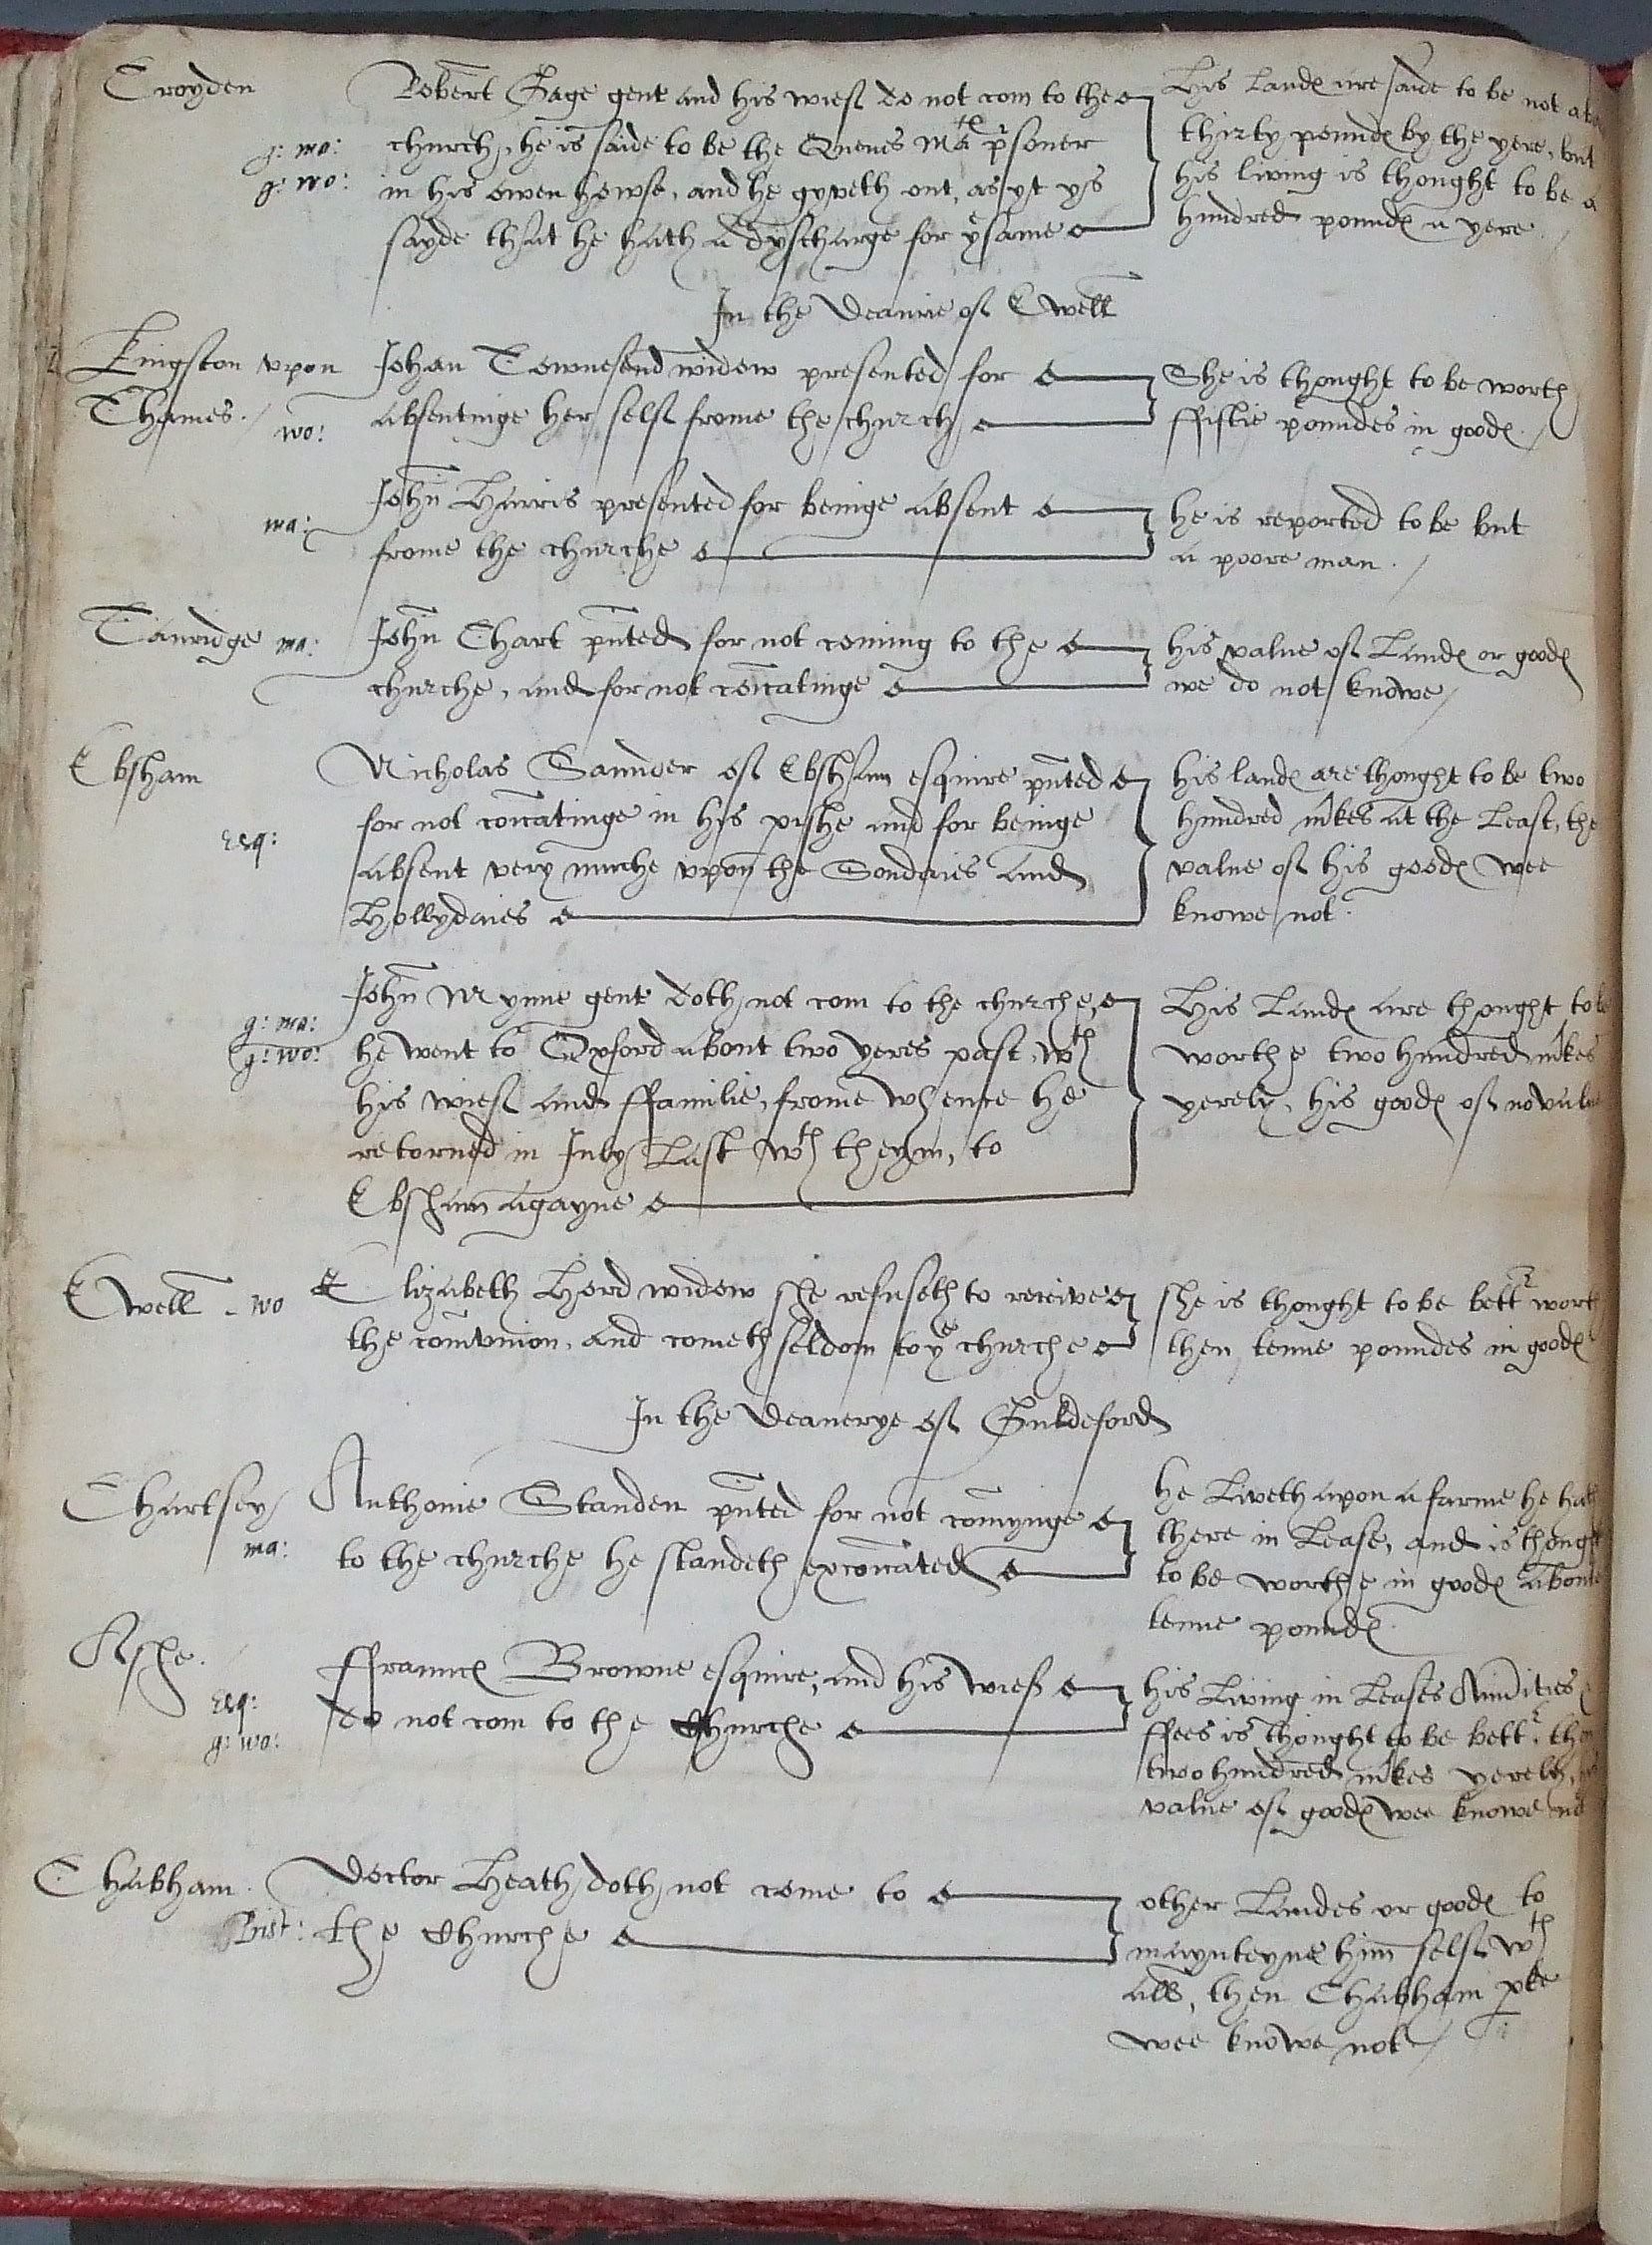 Croyden
g: ma:
g: wo:
Robert Gage gent and his wief do not com to the
church, he is saide to be the Quenes Ma^tes prsoner
in his owen howse, and he gyveth out, as yt ys
sayde that he hath a dyscharge for ye same
His landes are saide to be not abo
thirty poundes by the yere, but
his living is thought to be a
hundred poundes a yere.
In the Deanrie of Ewell
Kingston vpon
Thames. wo:
Johan Townesend widow presented for
absentinge her self frome the church
She is thought to be worth
ffiftie poundes in goodes.
ma:
John Harris presented for beinge absent
frome the churche
he is reported to be but
a poore man.
Tanridge ma:
John Chart pnted for not coming to the
churche, and for not coicatinge
his value of Landes or goodes
we do not knowe
Ebsham
Esq:
Nicholas Saunder of Ebsham esquire pnted
for not coicatinge in his pishe and for beinge
absent very muche vpon the Sondaies and
Hollydaies
his landes are thought to be two
hundred mkes at the Least, the
value of his goodes wee
knowe not.
g: ma:
g: wo:
John Mynne gent doth not com to the churche,
he went to Oxford about two yeres past, wth
his wief and ffamilie, frome whence he
retorned in July Last wth theym, to
Ebsham agayne
His Landes are thought to be
worthe two hundred mkes
yerely, his goodes of no value
Ewell - wo
Elizabeth Hord widow she refuseth to receive
the comvnion, and cometh seldom to ye churche
she is thought to be bettr worth
then tenne poundes in goodes
In the Deanerye of Guldeford
Chartsey
ma:
Anthonie Standen pnted for not comynge
to the churche he standeth excoicated
he Liveth apon a farme he hath
there in Lease, and is thought
to be worthe in goodes aboue
tenne poundes
Ashe.
Esq:
g: wo:
ffraunces Browne esquire, and his wief
do not com to the Churche
his Living in Leases Anuities
ffees is thought to be bettr then
two hundred mkes yerely,
value of goodes wee knowe not
Chabham.
Prist:
Doctor Heath doth not come to
the Churche
other Landes or goodes to
maynteyne him self wth
all, then Chabham pke
wee knowe not